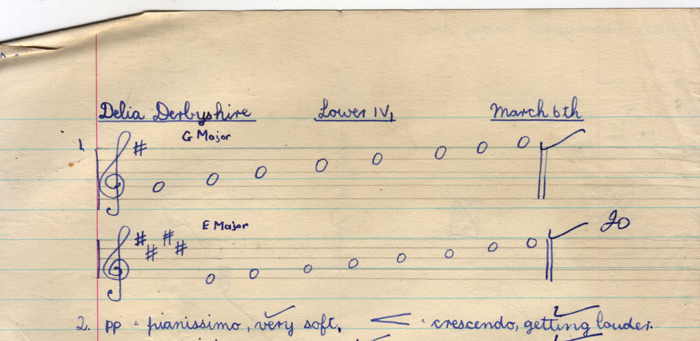 Delia Derbyshire Lower IV, March 6th
1. G Major
E Major 20
2. pp = pianissimo, very soft, < . crescendo, getting louder.